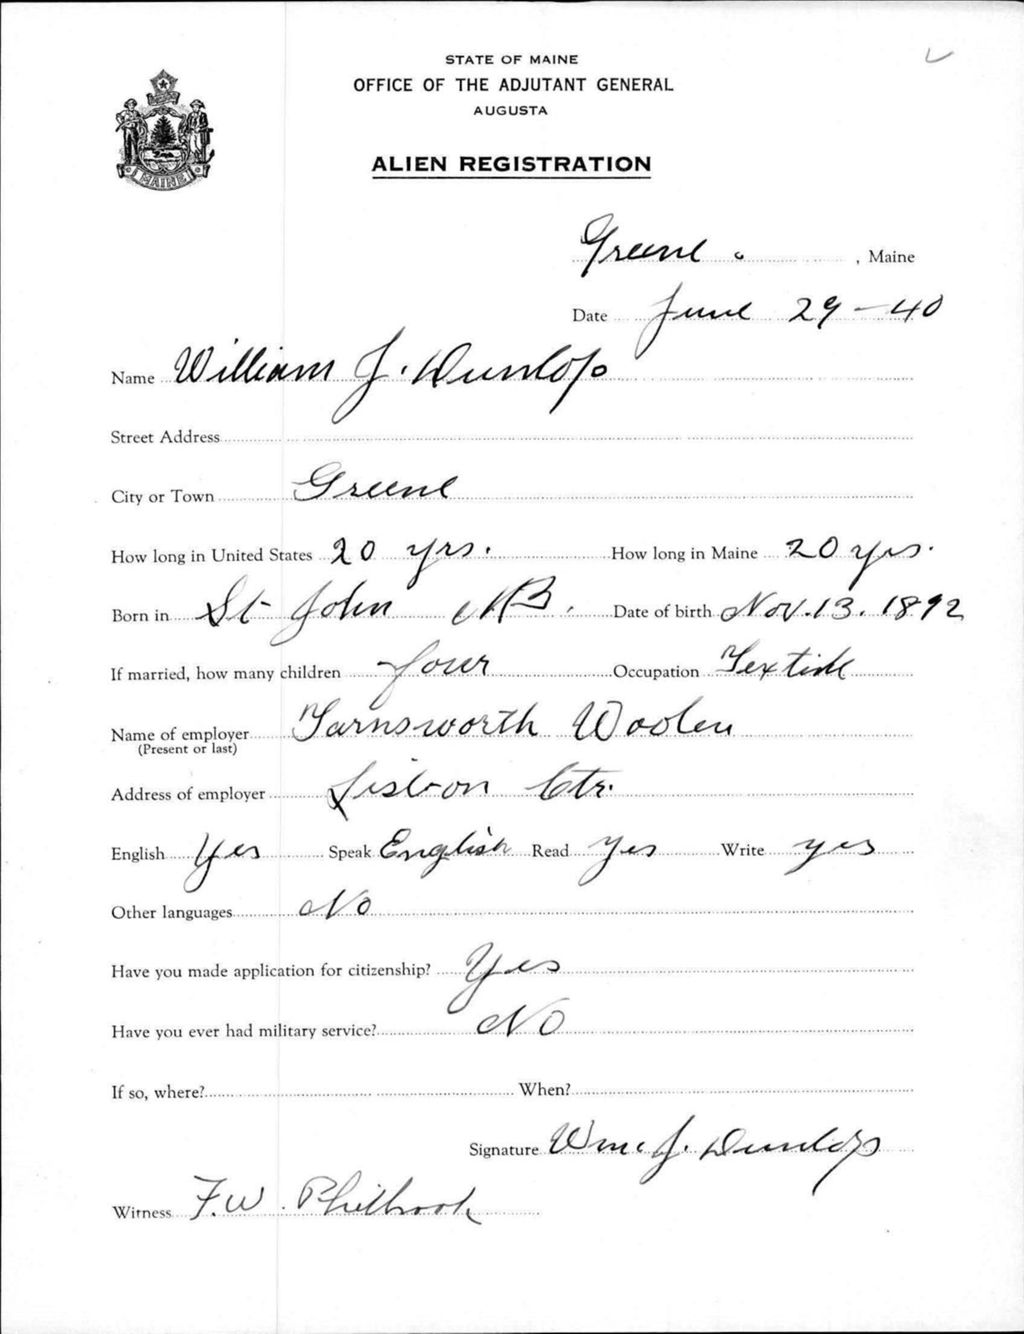 STATE OF MAINE
OFFICE OF THE ADJUTANT GENERAL
AUGUSTA
ALIEN REGISTRATION
MAINE
Greene, Maine
Date June 29-40
Name William J. Dunlop
Street Address
City or Town Greene
How long in United States 20 yrs. How long in Maine 20 yrs.
Born in St John NB. Date of birth Nov. 13. 1892
If married, how many children four Occupation Textile
Name of employer Farnsworth Woolen
(Present or last)
Address of employer Lisbon Ctr.
English Yes Speak English Read Yes Write yes
Other languages No
Have you made application for citizenship? Yes
Have you ever had military service? No
If so, where? When?
Signature Wm. J. Dunlop
Witness F.W. Philbrook